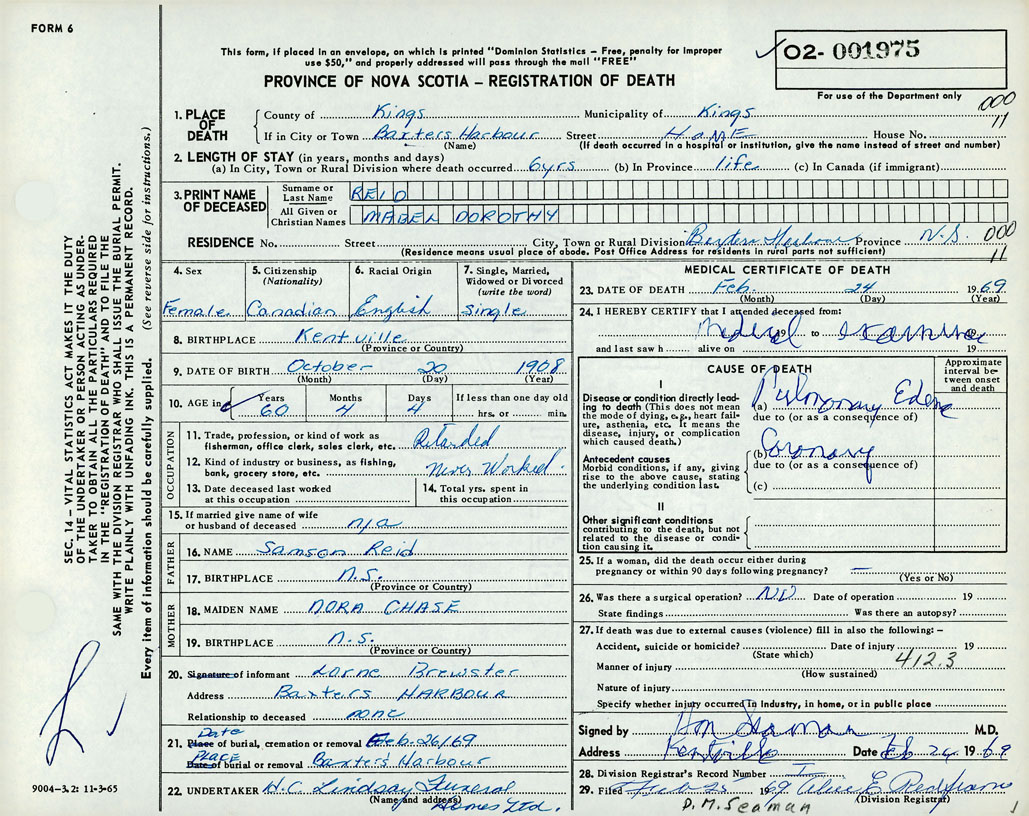 FORM 6
This form, if placed in an envelope, on which is printed "Dominion Statistics – Free, penalty for improper
use $50," and properly addressed will pass through the mail "FREE"
PROVINCE OF NOVA SCOTIA – REGISTRATION OF DEATH
02- 001975
For use of the Department only
000
11
SEC. 14 – VITAL STATISTICS ACT MAKES IT THE DUTY
OF THE UNDERTAKER OR PERSON ACTING AS UNDER-
TAKER TO OBTAIN ALL THE PARTICULARS REQUIRED
IN THE "REGISTRATION OF DEATH" AND TO FILE THE
SAME WITH THE DIVISION REGISTRAR WHO SHALL ISSUE THE BURIAL PERMIT.
WRITE PLAINLY WITH UNFADING INK. THIS IS A PERMANENT RECORD.
Every item of information should be carefully supplied. (See reverse side for instructions.)
1. PLACE OF DEATH
County of Kings Municipality of Kings
If in City or Town Baxters Harbour Street HOME House No.
(Name) (If death occurred in a hospital or institution, give the name instead of street and number)
2. LENGTH OF STAY (in years, months and days)
(a) In City, Town or Rural Division where death occurred 6 yrs (b) In Province life (c) In Canada (if immigrant)
3. PRINT NAME OF DECEASED
Surname or Last Name REID
All Given or Christian Names MABEL DOROTHY
RESIDENCE No. Street City, Town or Rural Division Baxters Harbour Province N.S. 000
(Residence means usual place of abode. Post Office Address for residents in rural parts not sufficient) 11
4. Sex Female
5. Citizenship (Nationality) Canadian
6. Racial Origin English
7. Single, Married, Widowed or Divorced (write the word) Single
8. BIRTHPLACE Kentville
(Province or Country)
9. DATE OF BIRTH October 20 1908
(Month) (Day) (Year)
10. AGE in Years 60 Months 4 Days 4 If less than one day old hrs. or min.
OCCUPATION
11. Trade, profession, or kind of work as fisherman, office clerk, sales clerk, etc. Retarded
12. Kind of industry or business, as fishing, bank, grocery store, etc. Never Worked.
13. Date deceased last worked at this occupation
14. Total yrs. spent in this occupation
15. If married give name of wife or husband of deceased n/a
FATHER
16. NAME Samson Reid
17. BIRTHPLACE N.S.
(Province or Country)
MOTHER
18. MAIDEN NAME NORA CHASE
19. BIRTHPLACE N.S.
(Province or Country)
20. Signature of informant Lorne Brewster
Address Baxters HARBOUR
Relationship to deceased none
Date
21. Place of burial, cremation or removal Feb. 26/69
PLACE
Date of burial or removal Baxters Harbour
22. UNDERTAKER H.C. Lindsay Funeral
(Name and address) Homes Ltd.
9004-3.2: 11-3-65
MEDICAL CERTIFICATE OF DEATH
23. DATE OF DEATH Feb. 24 1969
(Month) (Day) (Year)
24. I HEREBY CERTIFY that I attended deceased from:
Medical 19 to Examiner 19
and last saw h alive on 19
CAUSE OF DEATH
Approximate interval between onset and death
I
Disease or condition directly leading to death (This does not mean the mode of dying, e.g., heart failure, asthenia, etc. It means the disease, injury, or complication which caused death.)
(a) Pulmonary Edema
due to (or as a consequence of)
Antecedent causes
Morbid conditions, if any, giving rise to the above cause, stating the underlying condition last.
(b) Coronary
due to (or as a consequence of)
(c)
II
Other significant conditions
contributing to the death, but not related to the disease or condition causing it.
25. If a woman, did the death occur either during
pregnancy or within 90 days following pregnancy? –
(Yes or No)
26. Was there a surgical operation? NO Date of operation 19
State findings Was there an autopsy?
27. If death was due to external causes (violence) fill in also the following: –
Accident, suicide or homicide? Date of injury 19
(State which) 412.3
Manner of injury
(How sustained)
Nature of injury
Specify whether injury occurred in Industry, in home, or in public place
Signed by M.D.
Address Kentville Date Feb 24 1969
28. Division Registrar's Record Number
29. Filed Feb 25 1969
(Division Registrar)
D. M. Seaman
1